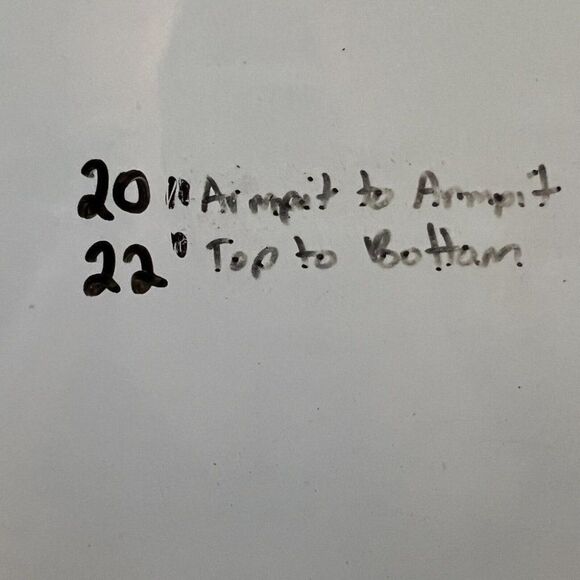 20" Armpit to Armpit
22" Top to Bottam